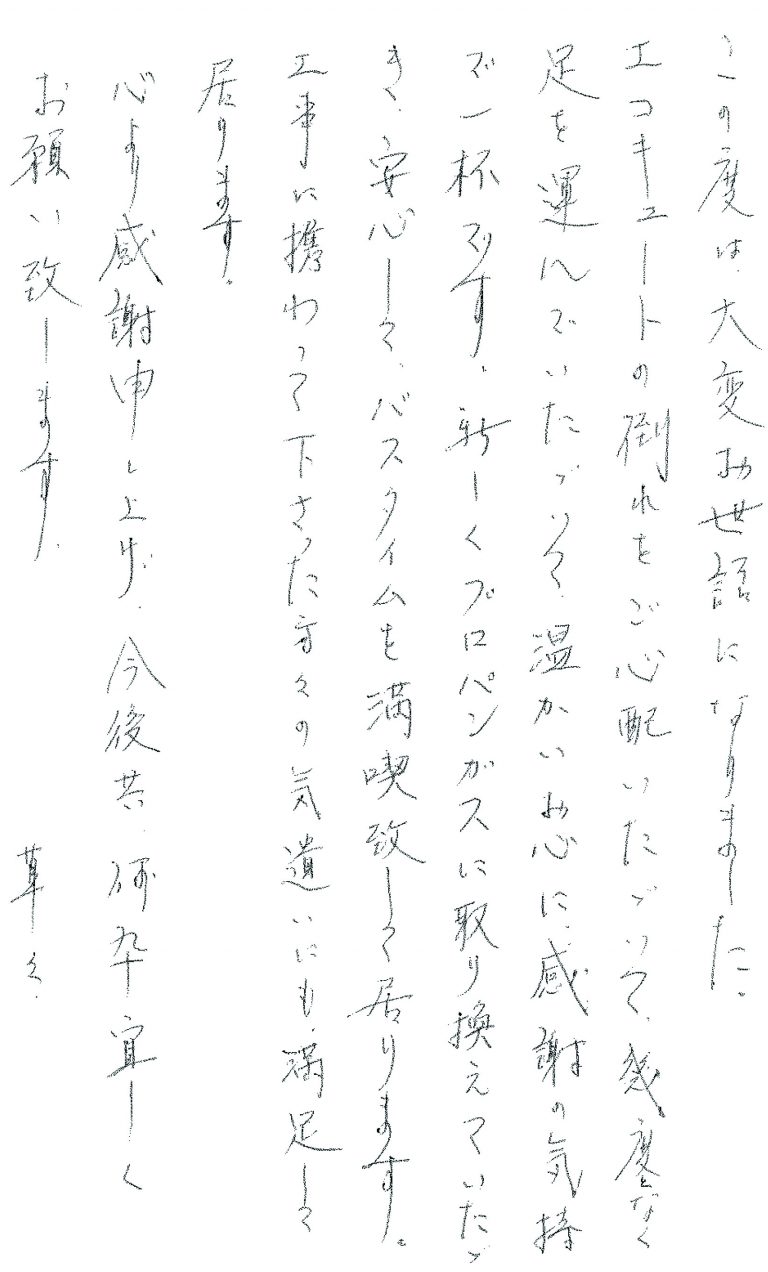 この度は、大変お世話になりました。
エコキュートの倒れをご心配いただいて、幾度となく
足を運んでいただいて、温かいお心に、感謝の気持
で一杯です。新しくプロパンガスに取り換えていただ
き、安心して、バスタイムを満喫致して居ります。
工事に携わって下さった方々の気遣いにも、満足して
居ります。
心より感謝申し上げ、今後共、何卒宜しく
お願い致します。
草々